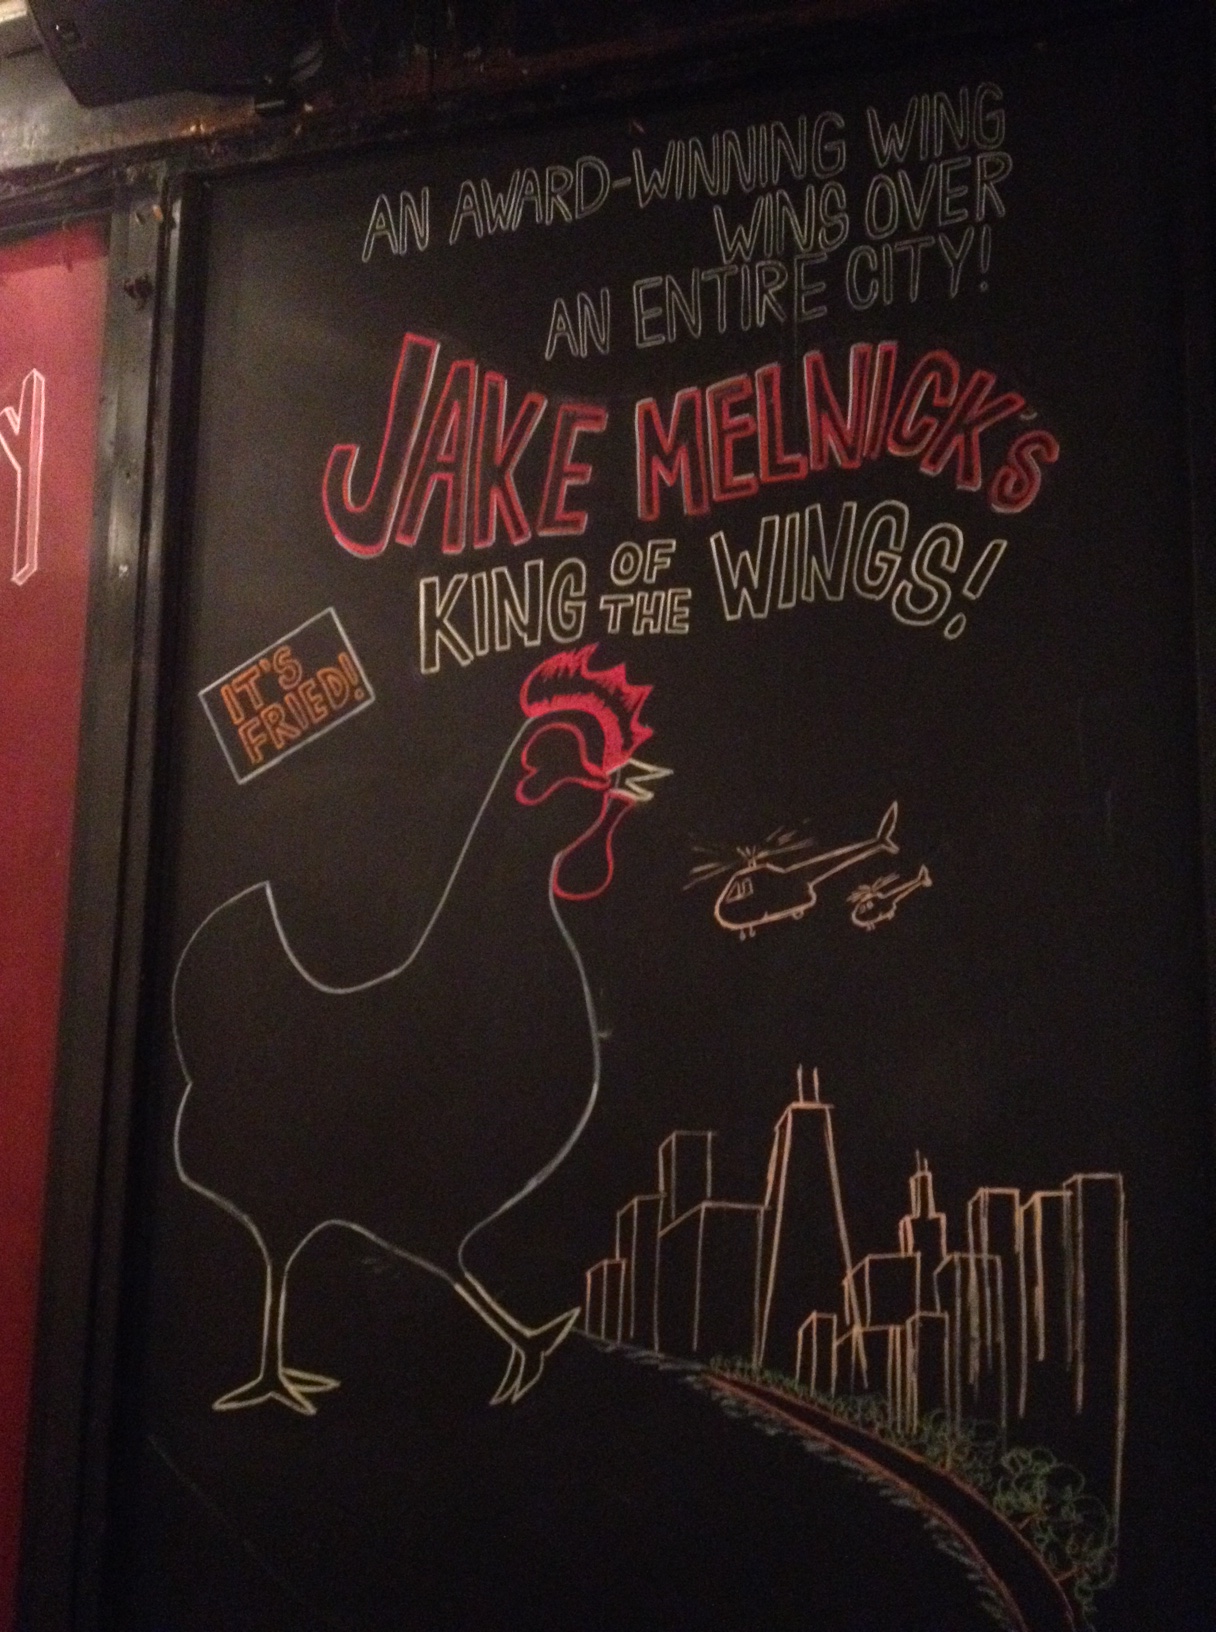 AN AWARD-WINNING WING
WINS OVER
AN ENTIRE CITY!
JAKE MELNICK's
KING OF THE WINGS!
IT'S
FRIED!
Y